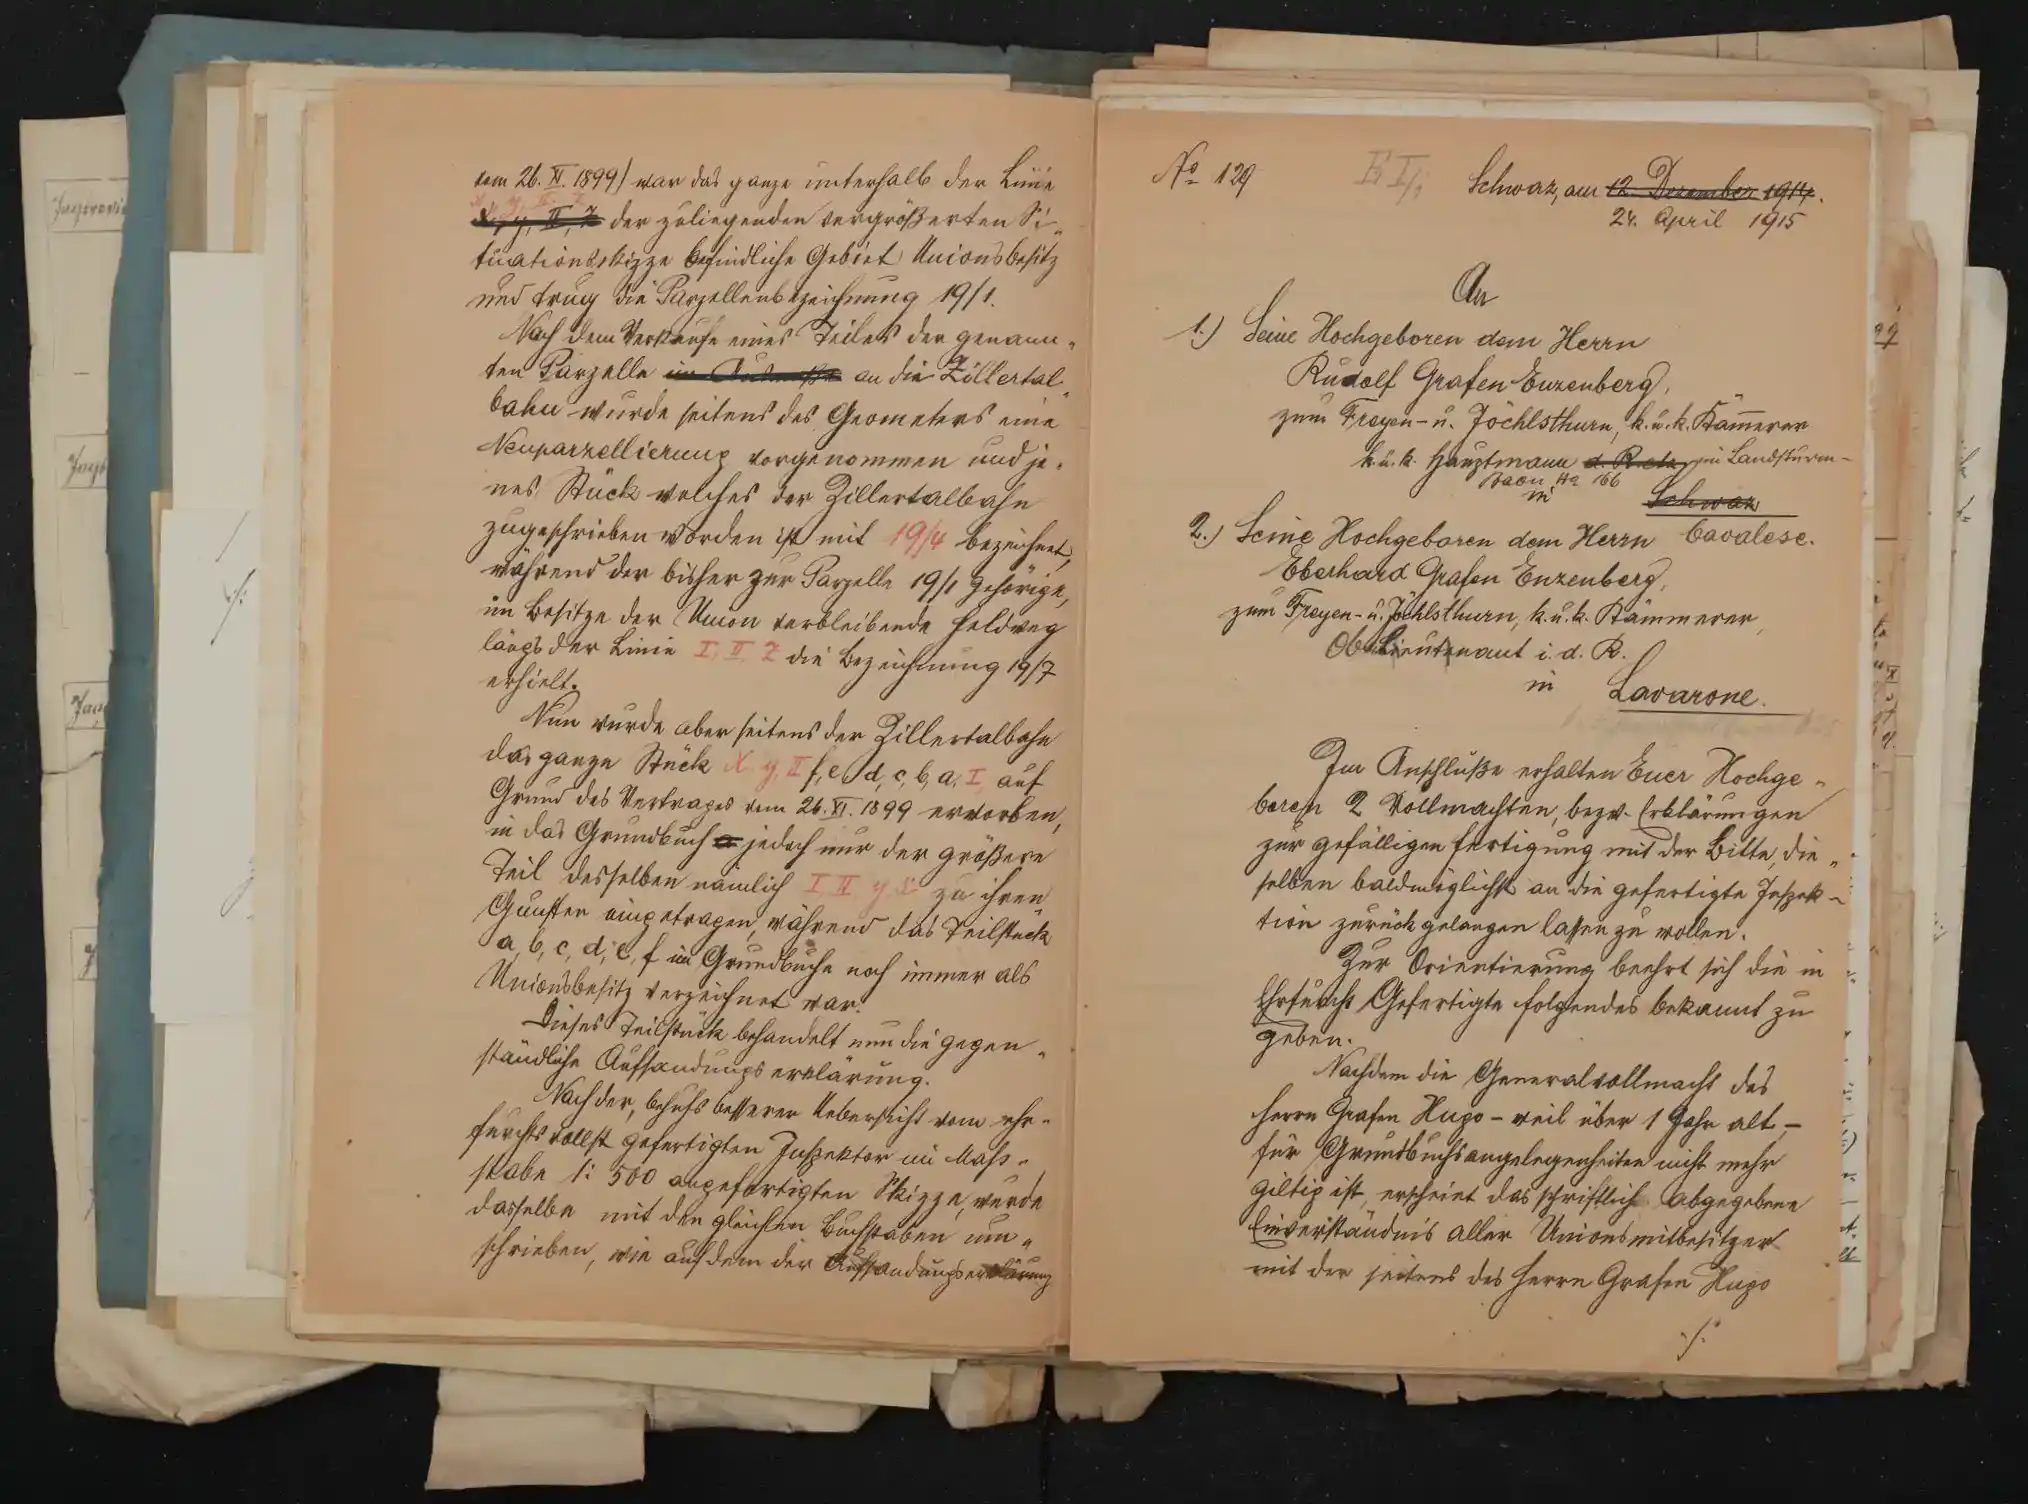 vom 26. XI. 1899) war das ganze unterhalb der Linie
x, y, II, Z
x, y, II, Z der zuliegenden vergrößerten Si-
tuationsskizze befindliche Gebiet Unionsbesitz
und trug die Parzellenbezeichnung 19/1.
Nach dem Verkaufe eines Teiles der genann-
ten Parzelle im Ausmaße an die Zillertal-
bahn wurde seitens des Geometers eine
Neuparzellierung vorgenommen und je-
nes Stück welches der Zillertalbahn
zugeschrieben worden ist mit 19/4 bezeichnet,
während der bisher zur Parzelle 19/1 gehörige,
im Besitze der Union verbleibende Feldweg
längs der Linie I, II, Z die Bezeichnung 19/7
erhielt.
Nun wurde aber seitens der Zillertalbahn
das ganze Stück X, y, II f, e, d, c, b, a, I auf
Grund des Vertrages vom 26. XI. 1899 erworben,
in das Grundbuch jedoch nur der größere
Teil desselben nämlich I II y x zu ihren
Gunsten eingetragen, während das Teilstück
a, b, c, d, e, f im Grundbuche noch immer als
Unionsbesitz verzeichnet war.
Dieses Teilstück behandelt nun die gegen-
ständliche Aufsandungserklärung.
Nach der, behufs besserer Uebersicht vom ehr-
furchtsvollst gefertigten Inspektor im Maß-
stabe 1:500 angefertigten Skizze, wurde
dasselbe mit den gleichen Buchstaben um-
schrieben, wie auf dem der Aufsandungserklärung
No 129
E I/1
Schwaz, am 12. Dezember 1914.
24. April 1915
An
1.) Seine Hochgeboren dem Herrn
Rudolf Grafen Enzenberg,
zum Freyen- u. Jöchlsthurn, k. u. k. Kämmerer
k. u. k. Hauptmann d. R. etz. im Landsturm-
Baon No 166
in Schwaz
2.) Seine Hochgeboren dem Herrn Cavalese.
Eberhard Grafen Enzenberg,
zum Freyen- u. Jöchlsthurn, k. u. k. Kämmerer,
Oblieutenant i. d. R.
in Lavarone.
Im Anschluße erhalten Euer Hochge-
boren 2 Vollmachten, bezw. Erklärungen
zur gefälligen Fertigung mit der Bitte, die-
selben baldmöglichst an die gefertigte Inspek-
tion zurückgelangen lassen zu wollen.
Zur Orientierung beehrt sich die in
Ehrfurcht Gefertigte folgendes bekannt zu
geben.
Nachdem die Generalvollmacht des
Herrn Grafen Hugo – weil über 1 Jahr alt –
für Grundbuchsangelegenheiten nicht mehr
giltig ist, erscheint das schriftlich abgegebene
Einverständnis aller Unionsmitbesitzer
mit der seitens des Herrn Grafen Hugo
./.